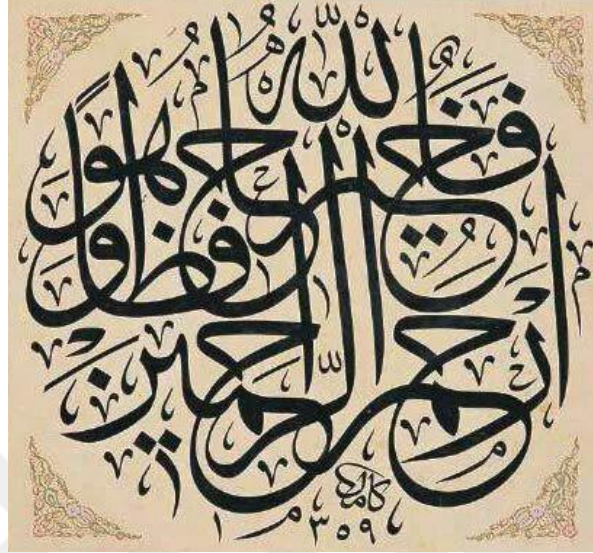 فالله خير حافظا وهو
ارحم الراحمين
كامل
١٣٥٩